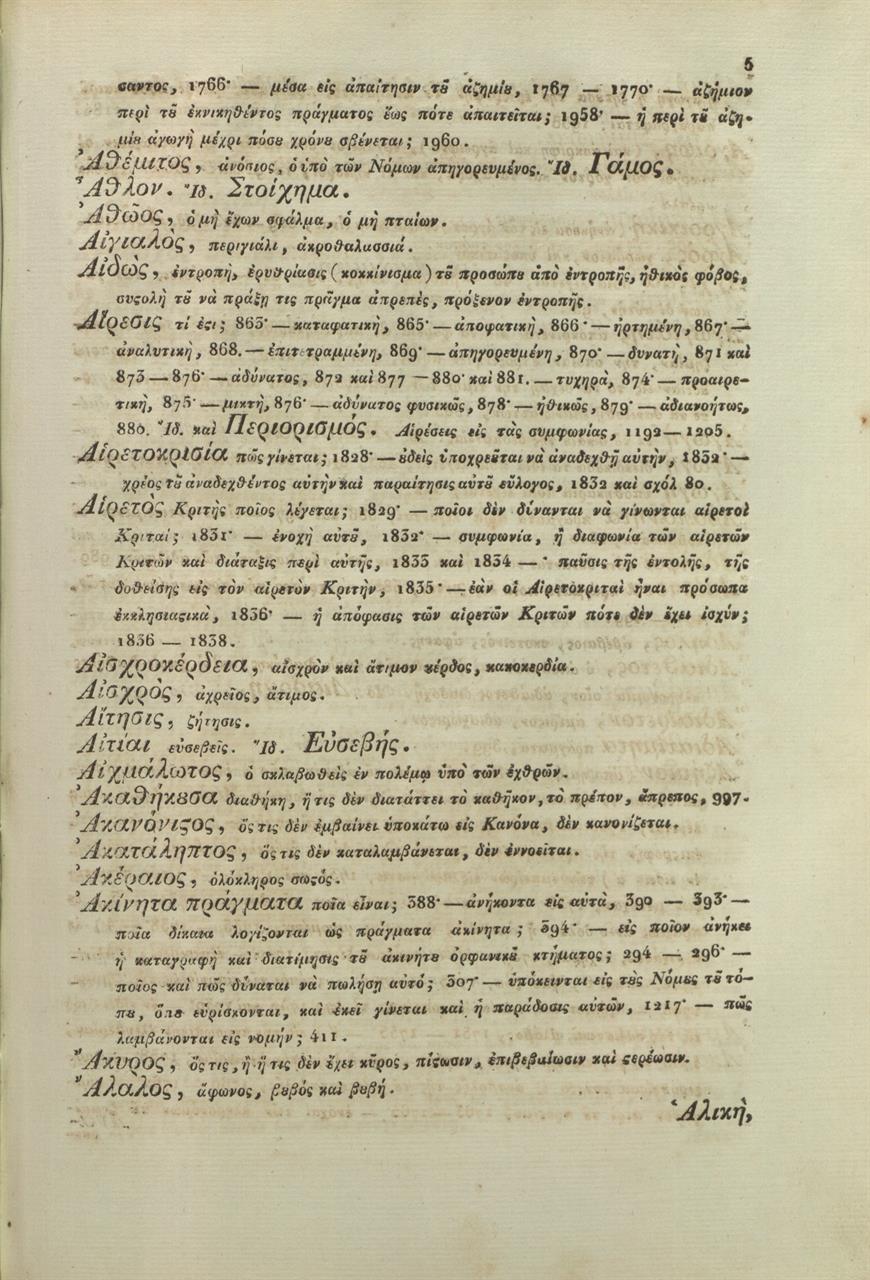 5
σαντος, 1766· — μέσα εἰς ἀπαίτησιν τȣ͂ ἀζημίȣ, 1767 — 1770· — ἀζήμιον
περὶ τȣ͂ ἐκνικηθέντος πράγματος ἕως πότε ἀπαιτεῖται; 1958· — ἡ περὶ τȣ͂ ἀζη-
μίȣ ἀγωγὴ μέχρι πόσȣ χρόνȣ σβένεται; 1960.
Ἀθέμιτος, ἀνόσιος, ὁ ὑπὸ τῶν Νόμων ἀπηγορευμένος. Ἴδ. Γάμος.
Ἆθλον. Ἴδ. Στοίχημα.
Ἀθῶος, ὁ μὴ ἔχων σφάλμα, ὁ μὴ πταίων.
Αἰγιαλὸς, περιγιάλι, ἀκροθαλασσιά.
Αἰδὼς, ἐντροπὴ, ἐρυθρίασις (κοκκίνισμα) τȣ͂ προσώπȣ ἀπὸ ἐντροπῆς, ἠθικὸς φόβος,
συϛολὴ τȣ͂ νὰ πράξῃ τις πρᾶγμα ἀπρεπὲς, πρόξενον ἐντροπῆς.
Αἵρεσις τί ἐϛι; 863· — καταφατικὴ, 865· — ἀποφατικὴ, 866· — ἠρτημένη, 867· —
ἀναλυτικὴ, 868. — ἐπιτετραμμένη, 869· — ἀπηγορευμένη, 870· — δυνατὴ, 871 καὶ
873 — 876· — ἀδύνατος, 872 καὶ 877 — 880· καὶ 881. — τυχηρὰ, 874· — προαιρε-
τικὴ, 875· — μικτὴ, 876· — ἀδύνατος φυσικῶς, 878· — ἠθικῶς, 879· — ἀδιανοήτως,
880. Ἴδ. καὶ Περιορισμός. Αἱρέσεις εἰς τὰς συμφωνίας, 1192 — 1205.
Αἱρετοκρισία πῶς γίνεται; 1828· — ȣ̓δεὶς ὑποχρεȣ͂ται νὰ ἀναδεχθῇ αὐτὴν, 1832· —
χρέος τȣ͂ ἀναδεχθέντος αὐτὴν καὶ παραίτησις αὐτȣ͂ εὔλογος, 1832 καὶ σχόλ 80.
Αἱρετὸς Κριτὴς ποῖος λέγεται; 1829· — ποῖοι δὲν δύνανται νὰ γίνωνται αἱρετοὶ
Κριταί; 1831· — ἐνοχὴ αὐτȣ͂, 1832· — συμφωνία, ἢ διαφωνία τῶν αἱρετῶν
Κριτῶν καὶ διάταξις περὶ αὐτῆς, 1833 καὶ 1834 — · παῦσις τῆς ἐντολῆς, τῆς
δοθείσης εἰς τὸν αἱρετὸν Κριτὴν, 1835· — ἐὰν οἱ Αἱρετόκριται ἦναι πρόσωπα
ἐκκλησιαϛικὰ, 1836· — ἡ ἀπόφασις τῶν αἱρετῶν Κριτῶν πότε δὲν ἔχει ἰσχύν;
1836 — 1838.
Αἰσχροκέρδεια, αἰσχρὸν καὶ ἄτιμον κέρδος, κακοκερδία.
Αἰσχρὸς, ἀχρεῖος, ἄτιμος.
Αἴτησις, ζήτησις.
Αἰτίαι εὐσεβεῖς. Ἴδ. Εὐσεβής.
Αἰχμάλωτος, ὁ σκλαβωθεὶς ἐν πολέμῳ ὑπὸ τῶν ἐχθρῶν.
Ἀκαθήκȣσα διαθήκη, ἥ τις δὲν διατάττει τὸ καθῆκον, τὸ πρέπον, ἄπρεπος, 997.
Ἀκανόνιϛος, ὅς τις δὲν ἐμβαίνει ὑποκάτω εἰς Κανόνα, δὲν κανονίζεται.
Ἀκατάληπτος, ὅς τις δὲν καταλαμβάνεται, δὲν ἐννοεῖται.
Ἀκέραιος, ὁλόκληρος σωϛός.
Ἀκίνητα πράγματα ποῖα εἶναι; 388· — ἀνήκοντα εἰς αὐτὰ, 390 — 393· —
ποῖα δίκαια λογίζονται ὡς πράγματα ἀκίνητα; 394· — εἰς ποῖον ἀνήκει
ἡ καταγραφὴ καὶ διατίμησις τȣ͂ ἀκινήτȣ ὀρφανικȣ͂ κτήματος; 294 — 296· —
ποῖος καὶ πῶς δύναται νὰ πωλήσῃ αὐτό; 307· — ὑπόκεινται εἰς τȣ̀ς Νόμȣς τȣ͂ τό-
πȣ, ὅπȣ εὑρίσκονται, καὶ ἐκεῖ γίνεται καὶ ἡ παράδοσις αὐτῶν, 1217· — πῶς
λαμβάνονται εἰς νομήν; 411.
Ἄκυρος, ὅς τις, ἢ ἥ τις δὲν ἔχει κῦρος, πίϛωσιν, ἐπιβεβαίωσιν καὶ ϛερέωσιν.
Ἄλαλος, ἄφωνος, βȣβὸς καὶ βȣβή.
Ἁλικὴ,